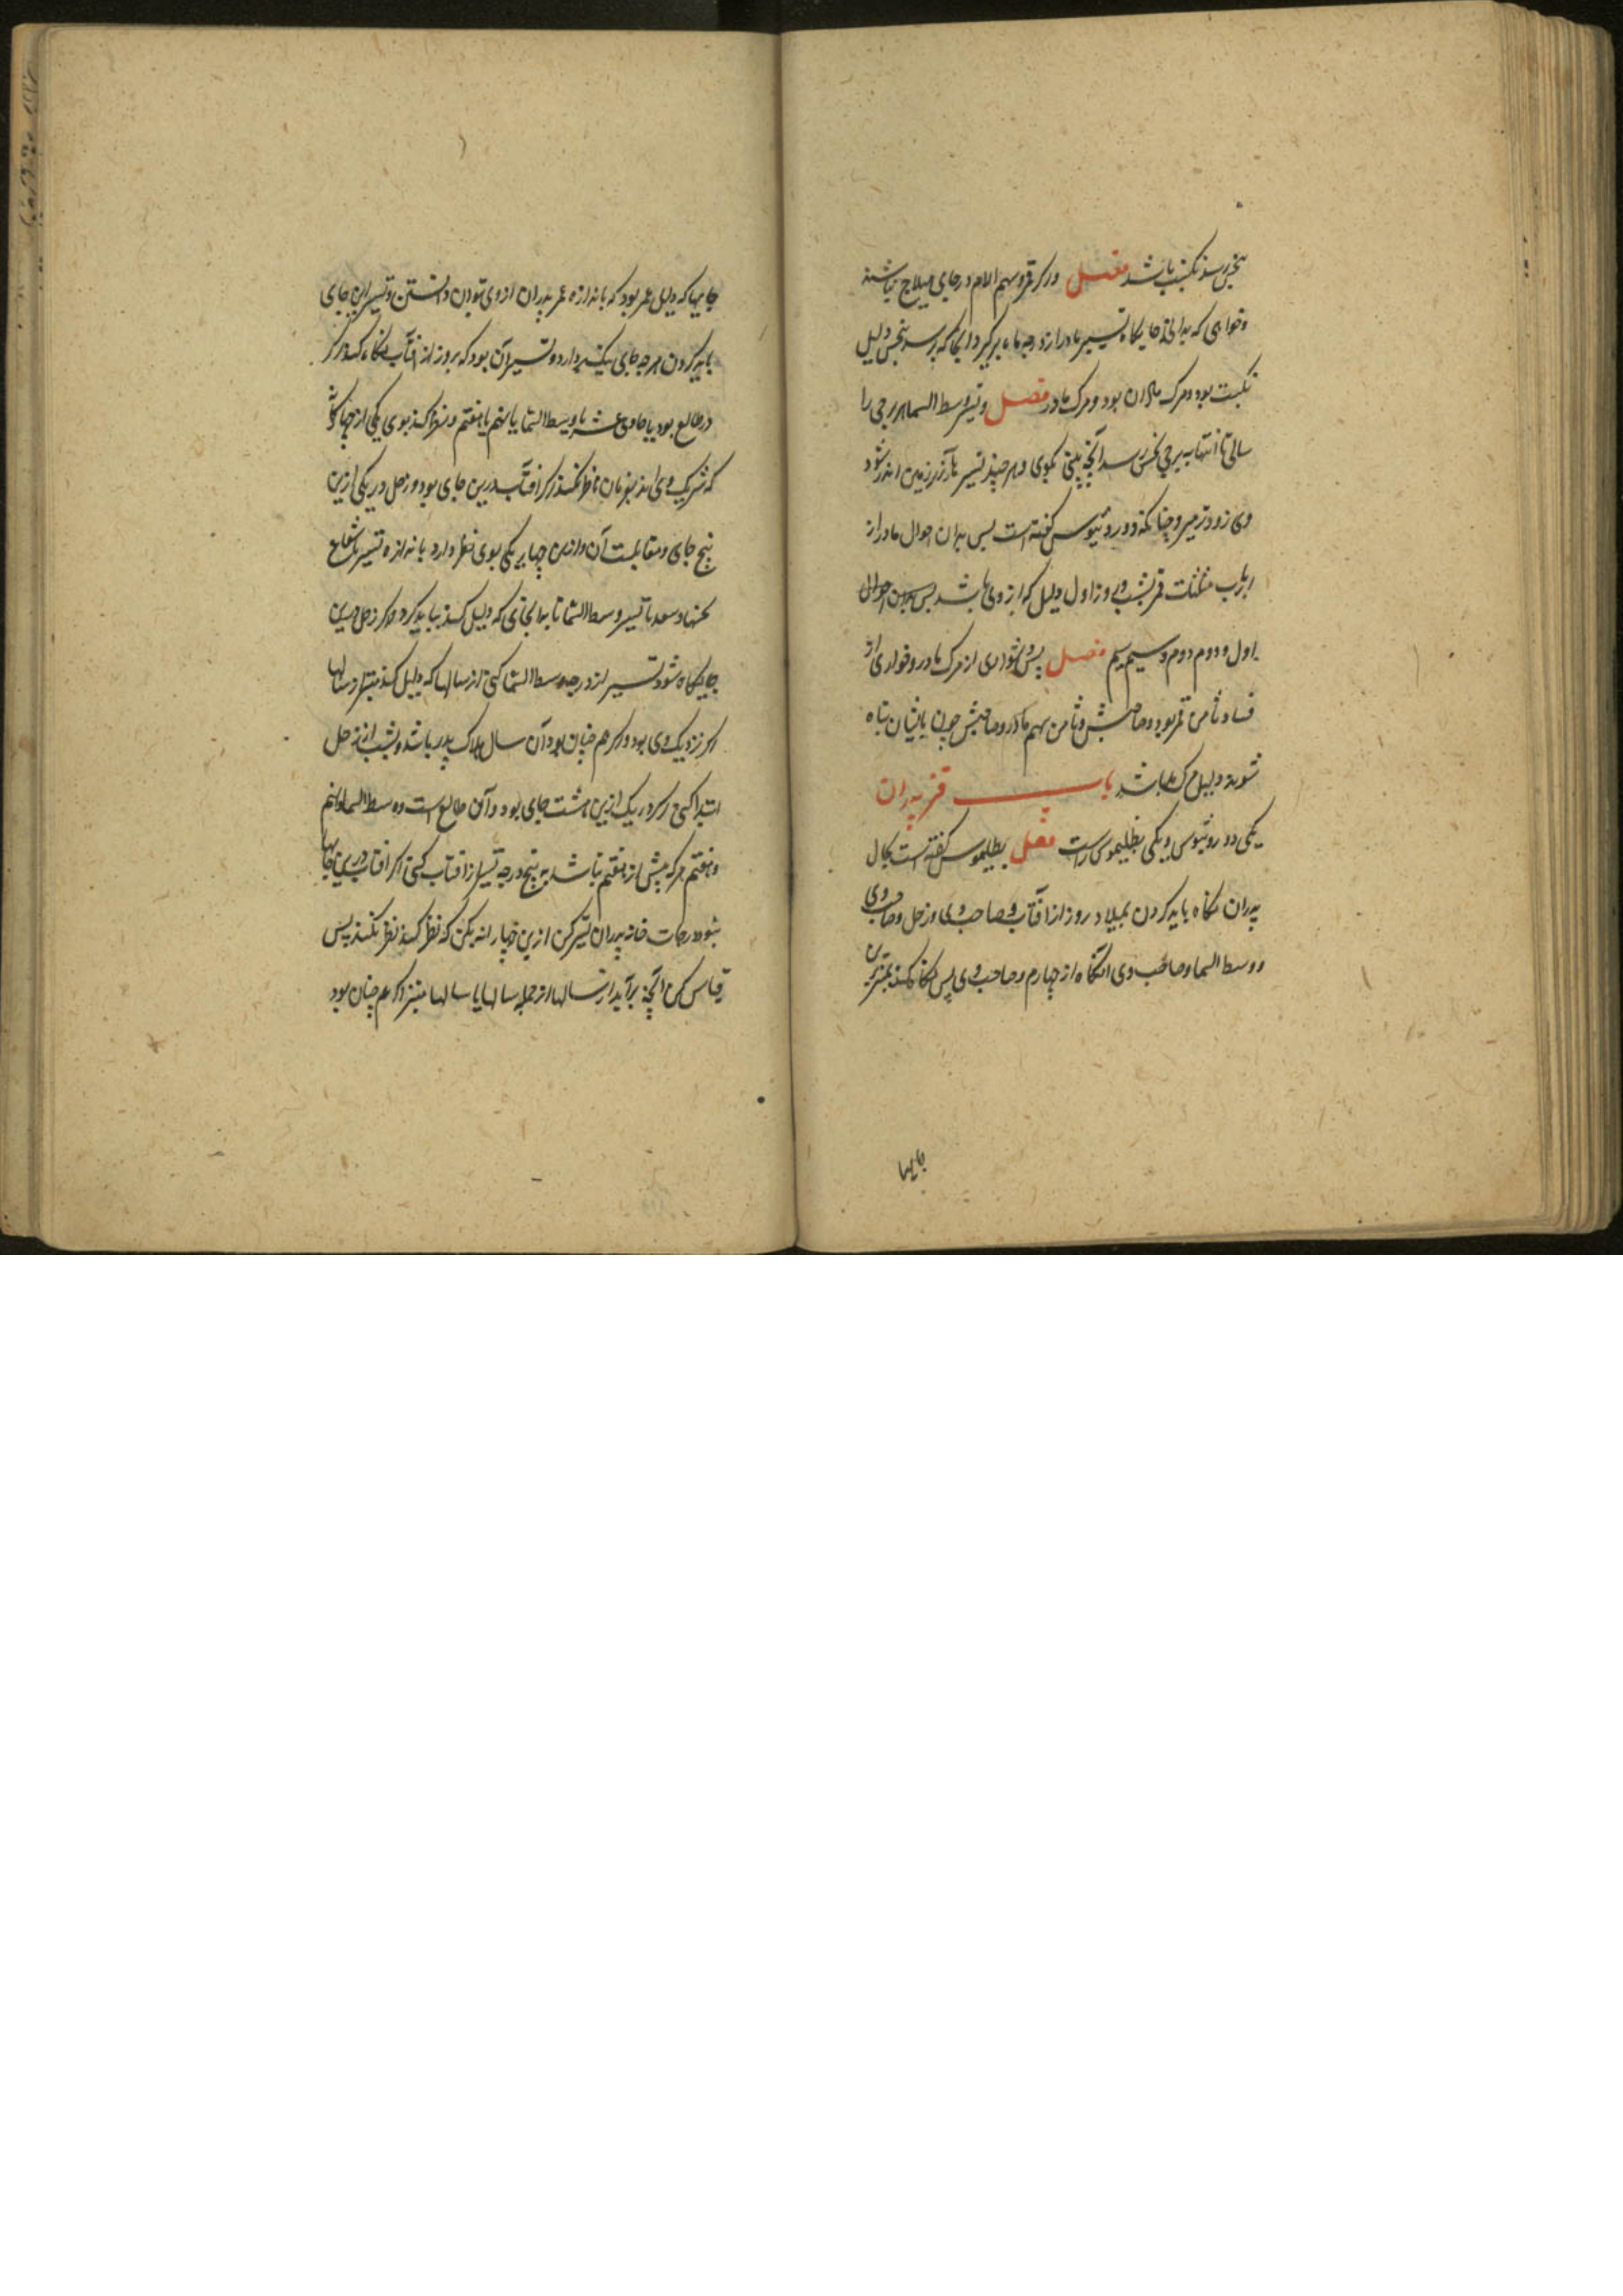 بنحس رسد نکبت باشد فصل ور کر قمر و سهم الام در جای هیلاج نباشند
و خواهی که بدانی جایگاه تسییر مادر از درجه ماه برگیر و آنجا که برسد بنحس دلیل
نکبت بود و مرک مادران بود و مرک مادر فصل و تسییر وسط السما هر برجی را
سالی تا انتها به برجی نحس رسد آنچه بینی بکوی و هر چند تسییر بآخر زمین اندر شود
وی زودتر میرد چنانکه دوروثیوس کفته است پس بدان احوال مادر از
ارباب مثلثات قمر بشب و روز اول دلیل که از وی باشد پس بدان احوال
اول و دوم دوم و سیم سیم فصل پس دشواری از مرک مادر و خواری از
فساد ثامن قمر بود و صاحبش و ثامن سهم مادر و صاحبش چون با ایشان تباه
شوند دلیل مرک باشد باب قنر پدران
یکی دوروثیوس و یکی بطلیموس راست فصل بطلیموس کفته است بحال
پدران نکاه باید کردن بمیلاد روز از آفتاب و صاحب وی و زحل و صاحب وی
و وسط السما و صاحب وی آنکاه از چهارم و صاحب وی پس نکاه کند بهترین
جایها
جایها که دلیل عمر بود که باندازه عمر پدران از وی توان دانستن و تسییر این جای
باید کردن هر چه جای یکدیگر دارد و تسییر آن بود که بروز از آفتاب نکاه کند اگر
در طالع بود یا حادی عشر یا وسط السما یا نهم یا هفتم و نظر کند بوی یکی از چهار کواکب
که شریک وی اند بفرمان ناظر نکند اگر آفتاب درین جای بود و زحل در یکی ازین
پنج جای و مقابلت آن و ازین چهار یکی بوی نظر دارد باندازه تسییر شعاع
نحسها و سعد با تسییر وسط السما تا بدانجای که دلیل کند بباید کرد و اگر زحل درین
جایگاه شود تسییر از درجه وسط السما کنی از سالها که دلیل کند منتها و سالها
اگر نزدیک وی بود و اگر هم چنان بود آن سال هلاک پدر باشد و بشب از زحل
ابتدا کنی اگر در یک ازین هشت جای بود و آن طالع است و وسط السما و نهم
و هفتم هر که پیش از هفتم باشد به پنج درجه تسییر از آفتاب کنی اگر آفتاب درین جایها
نبود درجات خانه پدران تسییر کن ازین چهار انه یکن که نظر کند نظر نکند پس
قیاس کن آنچه برآید از سالها از جمله سالها یا سالها منتها اگر هم چنان بود